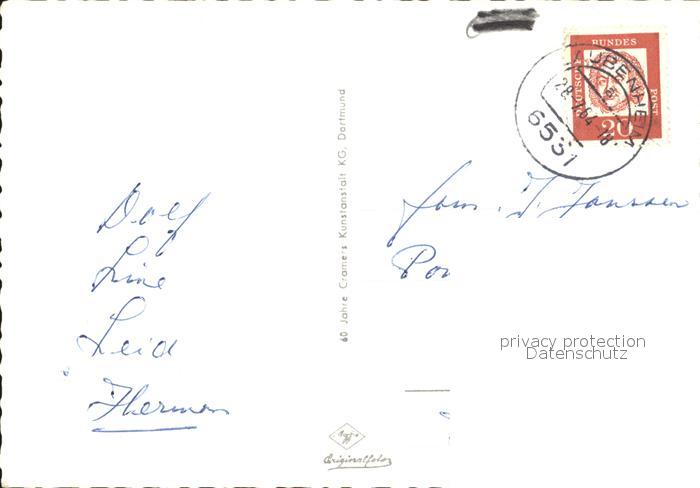 Dolf
Line
Leid
Herman
60 Jahre Cramers Kunstanstalt KG, Dortmund
Agfa
Originalfoto
DEUTSCHE BUNDESPOST
20
UBENHEIM
6531
Fam. J. Janssen
privacy protection
Datenschutz